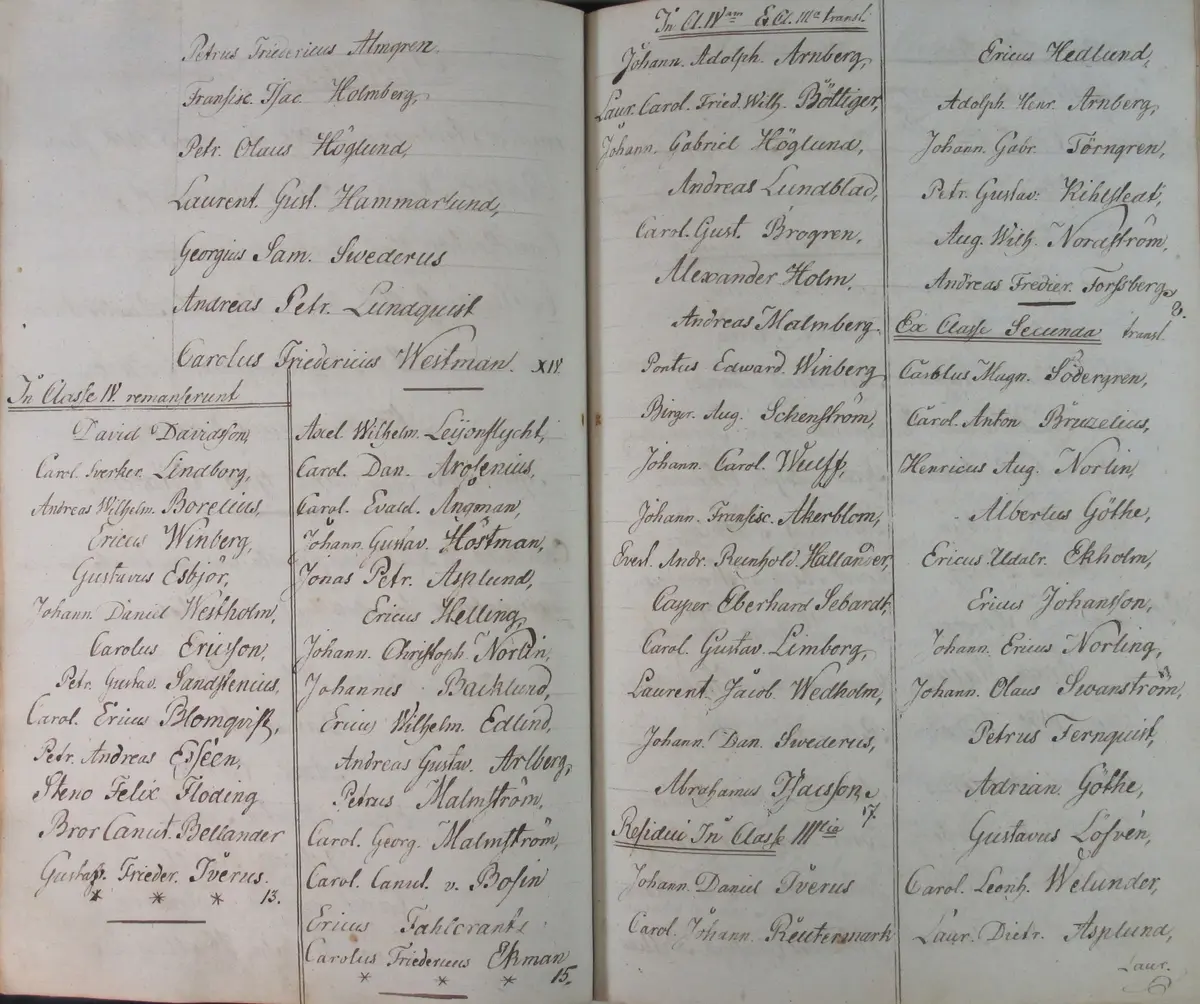 Petrus Friedericus Almgren.
Fransisc. Isac. Holmberg,
Petr. Olaus Höglund,
Laurent. Gust. Hammarlund,
Georgius Sam. Swederus
Andreas Petr. Lundquist
Carolus Friedericus Westman. XIV.
In Classe IV. remanserunt
David Davidsson,
Carol. Sverker. Lindborg,
Andreas Wilhelm. Borelius,
Ericus Winberg,
Gustavus Esbjör,
Johann. Daniel Westholm,
Carolus Ericsson,
Petr. Gustav. Sandstenius,
Carol. Ericus Blomqvist,
Petr. Andreas Esséen,
Steno Felix Floding
Bror Canut. Bellander
Gustaff. Frieder. Iverus.
* * * 13.
Axel Wilhelm. Leijonflycht,
Carol. Dan. Arosenius,
Carol. Evald. Ångman,
Johann. Gustav. Höstman,
Jonas Petr. Asplund,
Ericus Helling,
Johann. Christoph. Norlin,
Johannes Backlund,
Ericus Wilhelm. Edlind,
Andreas Gustav. Arlberg,
Petrus Malmström,
Carol. Georg. Malmström,
Carol. Canut. v. Bosin
Ericus Fahlcrants
Carolus Friedericus Ekman
* * * 15.
In Cl. IVam E Cl. IIIa transl.
Johann. Adolph. Arnberg,
Laur. Carol. Fried. Wilh. Böttiger,
Johann. Gabriel Höglund,
Andreas Lundblad,
Carol. Gust. Brogren,
Alexander Holm.
Andreas Malmberg.
Pontus Edward. Winberg,
Birger. Aug. Schenström,
Johann. Carol. Wulff,
Johann. Fransisc. Åkerblom,
Evert. Andr. Reinhold. Hallander,
Casper Eberhard Sebardt,
Carol. Gustav. Limborg,
Laurent. Jacob. Wedholm,
Johann. Dan. Swederus,
Abrahamus Isacsson.
17.
Residui In Classe IIItia
Johann. Daniel Iverus
Carol. Johann. Reutermark
Ericus Hedlund,
Adolph. Henr. Arnberg,
Johann. Gabr. Törngren,
Petr. Gustav. Kihlstedt,
Aug. Wilh. Nordström,
Andreas Fredier. Forssberg,
8.
Ex Classe Secunda transl.
Carolus Magn. Södergren,
Carol. Anton Bruzelius,
Henricus Aug. Norlin,
Albertus Göthe,
Ericus Udalr. Ekholm,
Ericus Johansson,
Johann. Ericus Norling,
Johann. Olaus Swanström,
Petrus Fernquist,
Adrian. Göthe,
Gustavus Löfvén,
Carol. Leonh. Welunder,
Laur. Dietr. Asplund,
Laur.